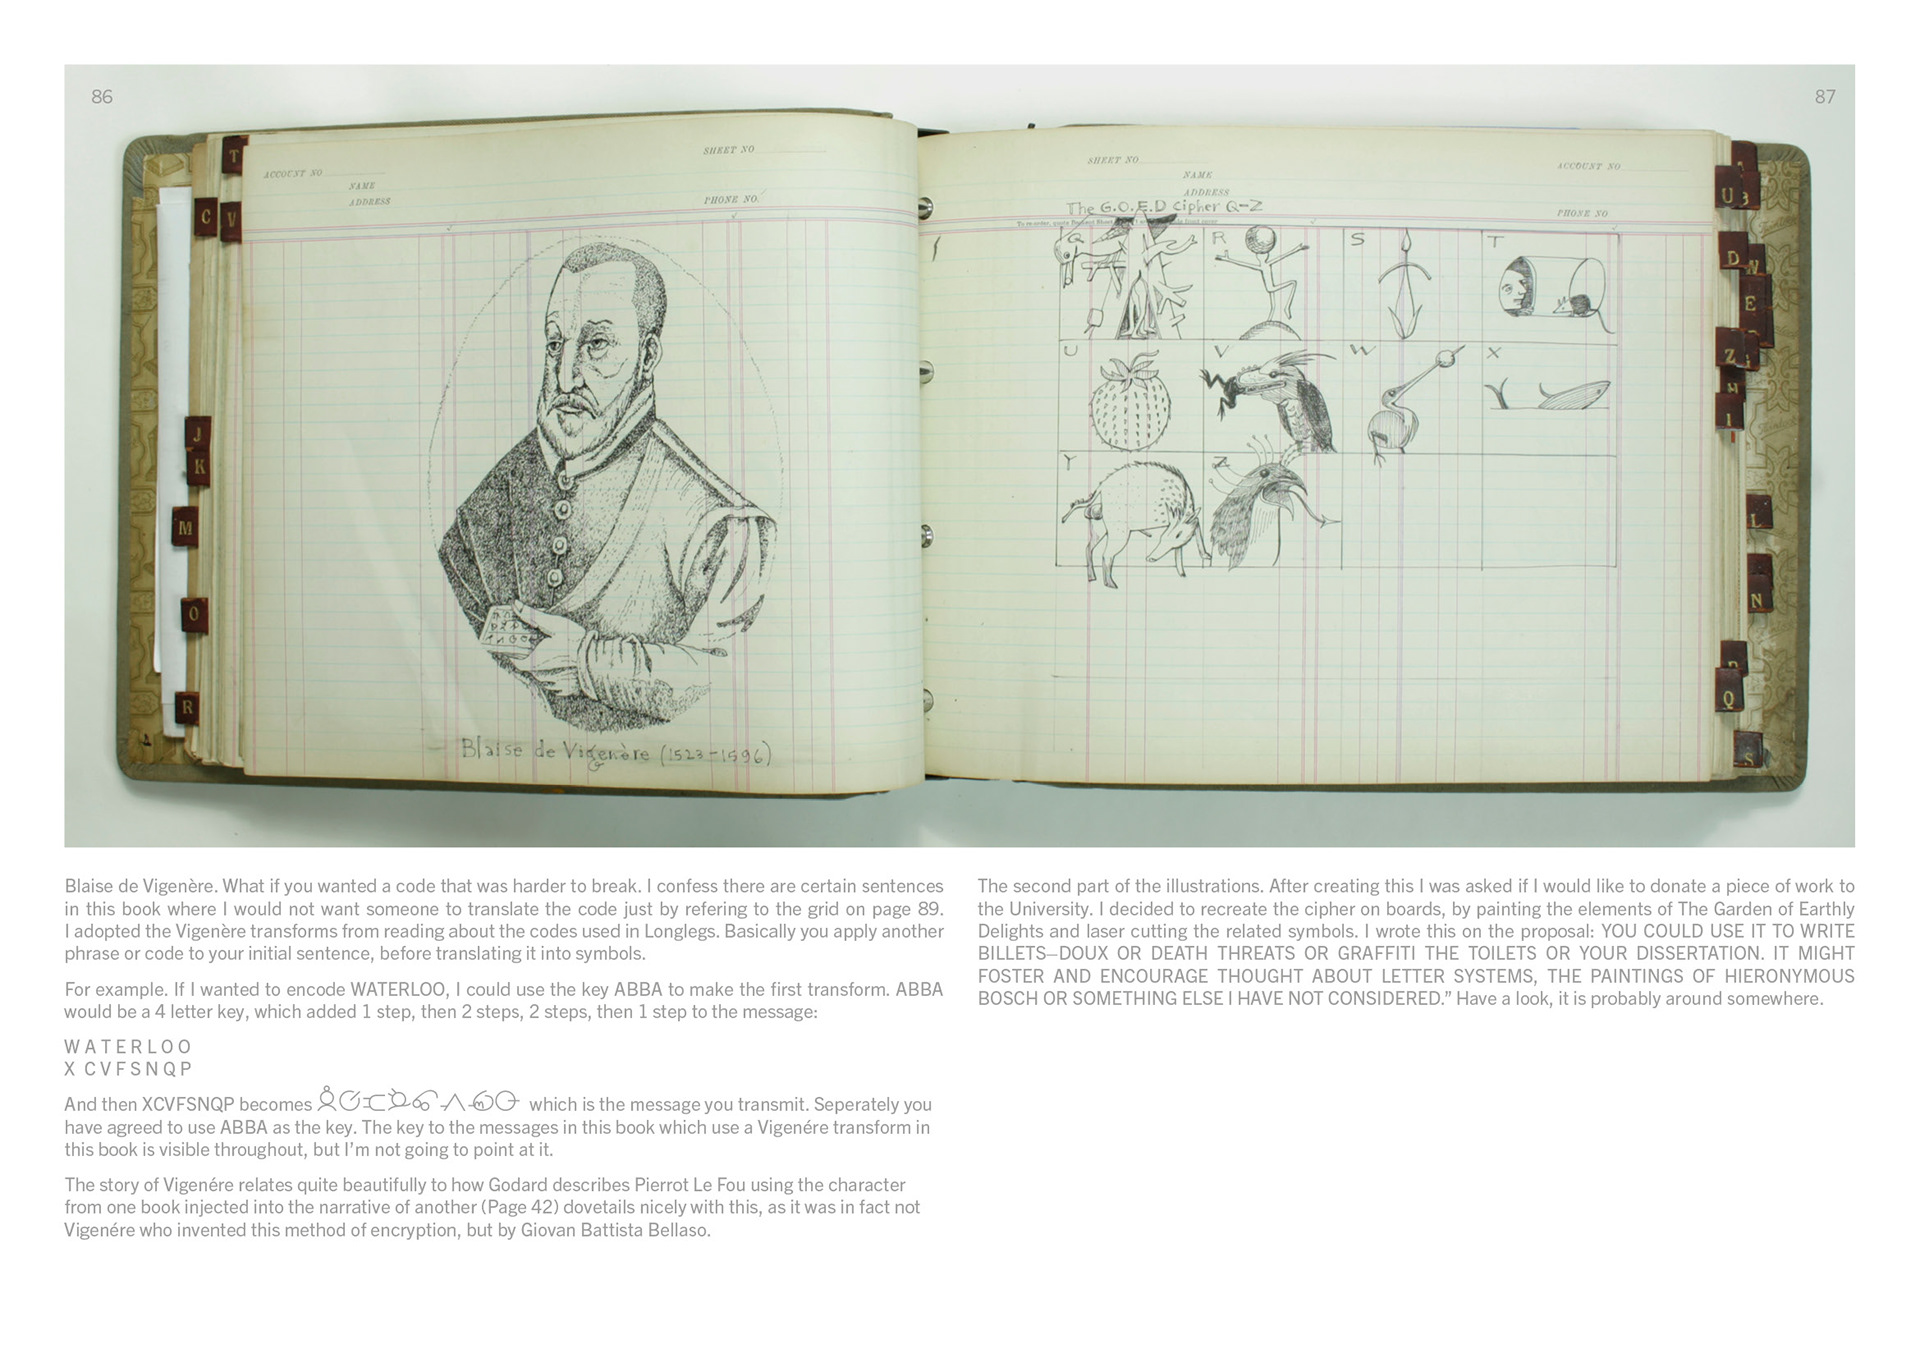 86
87
SHEET NO
ACCOUNT NO
NAME
ADDRESS
PHONE NO.
Blaise de Vigenère (1523-1596)
SHEET NO
ACCOUNT NO
NAME
ADDRESS
PHONE NO
The G.O.E.D Cipher Q-Z
Q R S T
U V W X
Y Z
T
C V
J
K
M
O
R
U B
D W
E
Z
H
I
L
N
Q
S
Blaise de Vigenère. What if you wanted a code that was harder to break. I confess there are certain sentences
in this book where I would not want someone to translate the code just by refering to the grid on page 89.
I adopted the Vigenère transforms from reading about the codes used in Longlegs. Basically you apply another
phrase or code to your initial sentence, before translating it into symbols.
For example. If I wanted to encode WATERLOO, I could use the key ABBA to make the first transform. ABBA
would be a 4 letter key, which added 1 step, then 2 steps, 2 steps, then 1 step to the message:
W A T E R L O O
X C V F S N Q P
And then XCVFSNQP becomes which is the message you transmit. Seperately you
have agreed to use ABBA as the key. The key to the messages in this book which use a Vigenére transform in
this book is visible throughout, but I'm not going to point at it.
The story of Vigenére relates quite beautifully to how Godard describes Pierrot Le Fou using the character
from one book injected into the narrative of another (Page 42) dovetails nicely with this, as it was in fact not
Vigenére who invented this method of encryption, but by Giovan Battista Bellaso.
The second part of the illustrations. After creating this I was asked if I would like to donate a piece of work to
the University. I decided to recreate the cipher on boards, by painting the elements of The Garden of Earthly
Delights and laser cutting the related symbols. I wrote this on the proposal: YOU COULD USE IT TO WRITE
BILLETS–DOUX OR DEATH THREATS OR GRAFFITI THE TOILETS OR YOUR DISSERTATION. IT MIGHT
FOSTER AND ENCOURAGE THOUGHT ABOUT LETTER SYSTEMS, THE PAINTINGS OF HIERONYMOUS
BOSCH OR SOMETHING ELSE I HAVE NOT CONSIDERED.” Have a look, it is probably around somewhere.